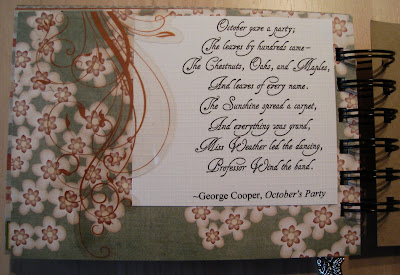 October gave a party;
The leaves by hundreds came–
The Chestnuts, Oaks, and Maples,
And leaves of every name.
The Sunshine spread a carpet,
And everything was grand,
Miss Weather led the dancing,
Professor Wind the band.
~George Cooper, October's Party